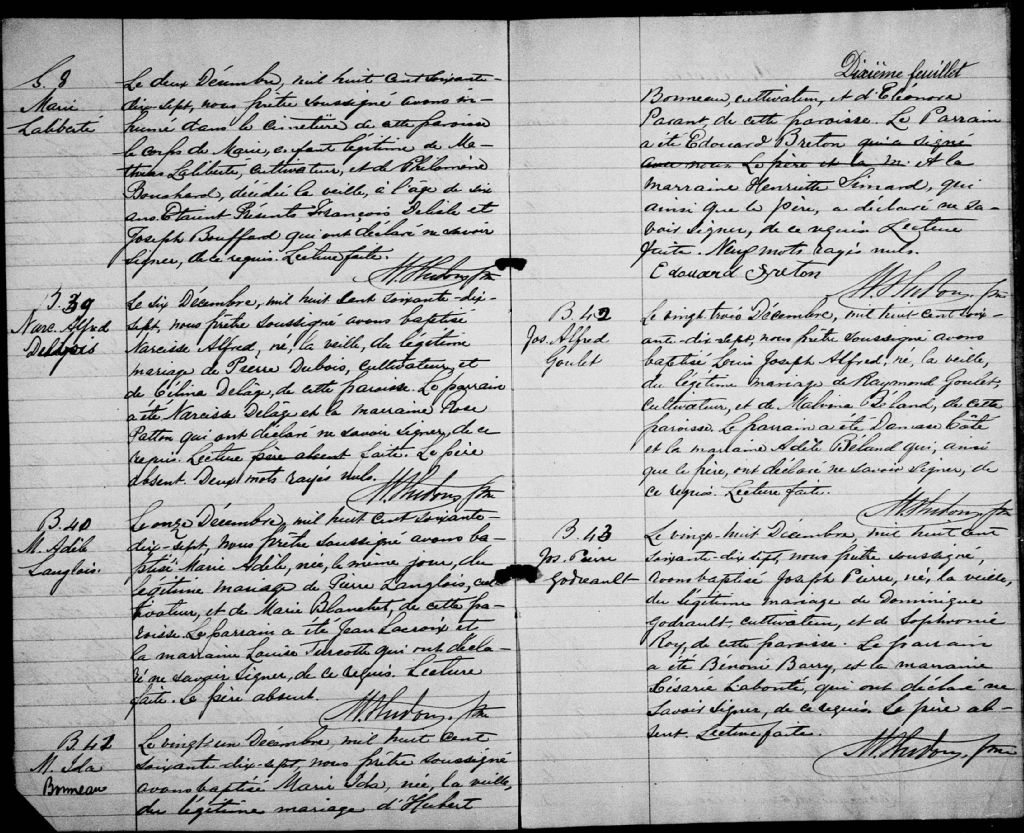 S. 8
Marie
Laliberté
Le deux Décembre, mil huit cent soixante-
dix-sept, nous prêtre soussigné avons in-
humé dans le cimetière de cette paroisse
le corps de Marie, enfant légitime de Ma-
thias Laliberté, cultivateur, et de Philomène
Bouchard, décédée la veille, à l'âge de six
ans. Etaient Présents François Delisle et
Joseph Bouffard qui ont déclaré ne savoir
signer, de ce requis. Lecture faite.
N. Hudon, ptre
B. 39
Narc. Alfred
Le six Décembre, mil huit cent soixante-dix-
sept, nous prêtre soussigné avons baptisé
Narcisse Alfred, né, la veille, du légitime
mariage de Pierre Dubois, cultivateur, et
de Célina Delâge, de cette paroisse. Le parrain
a été Narcisse Delâge et la marraine Rose
Patton qui ont déclaré ne savoir signer, de ce
requis. Lecture père absent faite. Le père
absent. Deux mots rayés nuls.
N. Hudon, ptre
B. 40
M. Adèle
Langlois
Le onze Décembre, mil huit cent soixante-
dix-sept, nous prêtre soussigné avons ba-
ptisé Marie Adèle, née, le même jour, du
légitime mariage de Pierre Langlois, cul-
tivateur, et de Marie Blanchet, de cette pa-
roisse. Le parrain a été Jean Lacroix et
la marraine Louise Turcotte qui ont décla-
ré ne savoir signer, de ce requis. Lecture
faite. Le père absent.
N. Hudon, ptre
B. 41
M. Ida
Bonneau
Le vingt-un Décembre, mil huit cent
soixante-dix-sept, nous prêtre soussigné
avons baptisé Marie Ida, née, la veille,
du légitime mariage d'Hubert
Dixième feuillet
Bonneau, cultivateur, et d'Eléonore
Parant, de cette paroisse. Le Parrain
a été Edouard Breton qui a signé
avec nous. Le père et la m et la
marraine Henriette Simard, qui
ainsi que le père, a déclaré ne sa-
voir signer, de ce requis Lecture
faite. Neuf mots rayés nuls.
Edouard Breton
N. Hudon, ptre
B. 42
Jos. Alfred
Goulet
Le vingt trois Décembre, mil huit cent soix-
ante-dix-sept, nous prêtre soussigné avons
baptisé Louis Joseph Alfred, né, la veille,
du légitime mariage de Raymond Goulet,
cultivateur, et de Malvina Béland, de cette
paroisse. Le parrain a été Damase Côté
et la marraine Adèle Béland qui, ainsi
que le père, ont déclaré ne savoir signer, de
ce requis. Lecture faite.
N. Hudon, ptre
B. 43
Jos. Pierre
Godreault
Le vingt-huit Décembre, mil huit cent
soixante-dix sept, nous prêtre soussigné,
avons baptisé Joseph Pierre, né, la veille,
du légitime mariage de Dominique
Godreault, cultivateur, et de Sophronie
Roy, de cette paroisse. Le parrain
a été Bénoni Barry, et la marraine
Césarie Labonté, qui ont déclaré ne
savoir signer, de ce requis. Le père ab-
sent. Lecture faite.
N. Hudon, ptre